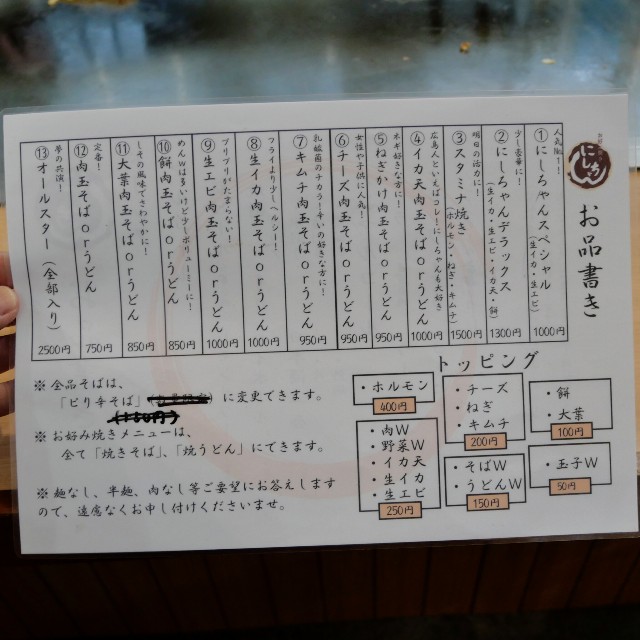 にしちゃん
お品書き
人気No.1!
①にしちゃんスペシャル
(生イカ・生エビ)
1000円
少し豪華に!
②にしちゃんデラックス
(生イカ・生エビ・イカ天・餅)
1300円
明日の活力に!
③スタミナ焼き
(ホルモン・ねぎ・キムチ)
1500円
広島人といえばコレ!にしちゃんも大好き
④イカ天肉玉そばorうどん
1000円
ネギ好きな方に!
⑤ねぎかけ肉玉そばorうどん
950円
女性や子供に人気!
⑥チーズ肉玉そばorうどん
950円
乳酸菌のチカラ!辛いの好きな方に!
⑦キムチ肉玉そばorうどん
950円
フライより少しヘルシー!
⑧生イカ肉玉そばorうどん
1000円
プリプリがたまらない!
⑨生エビ肉玉そばorうどん
1000円
⑩餅肉玉そばorうどん
850円
しその風味でさわやかに!
⑪大葉肉玉そばorうどん
850円
定番!
⑫肉玉そばorうどん
750円
夢の共演!
⑬オールスター(全部入り)
2500円
トッピング
・ホルモン
400円
・チーズ
・ねぎ
・キムチ
200円
・餅
・大葉
100円
・肉W
・野菜W
・イカ天
・生イカ
・生エビ
250円
・そばW
・うどんW
150円
・玉子W
50円
※全品そばは、
「ピリ辛そば」に変更できます。
※お好み焼きメニューは、
全て「焼きそば」、「焼うどん」にできます。
※麺なし、半麺、肉なし等ご要望にお答えします
ので、遠慮なくお申し付けくださいませ。